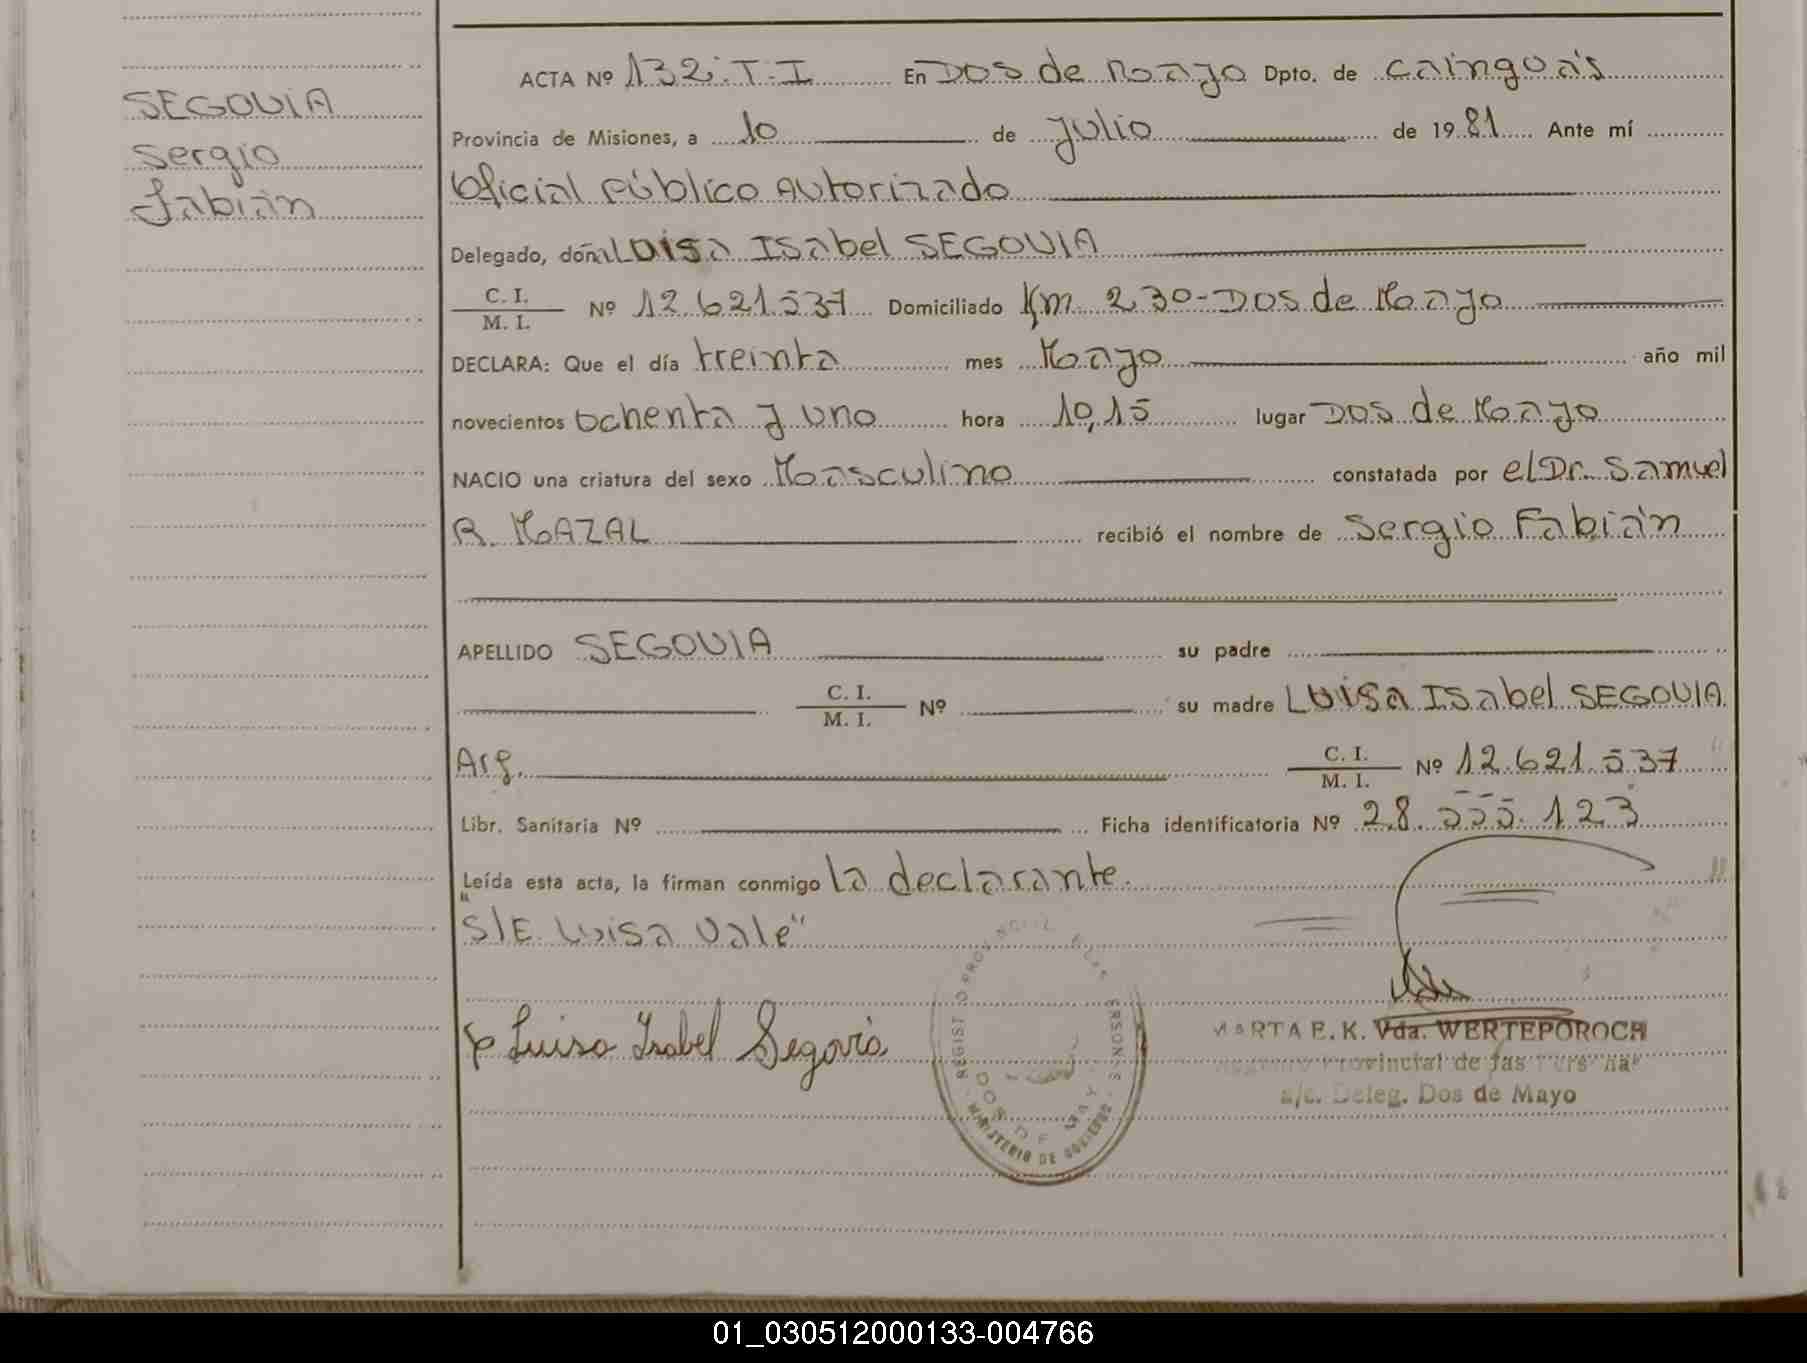 SEGOVIA
Sergio
Fabián
ACTA Nº 132. T. I. En Dos de Mayo Dpto. de Cainguás
Provincia de Misiones, a 10 de Julio de 1981 Ante mí
Oficial Público Autorizado
Delegado, doña Luisa Isabel SEGOVIA
C. I.
M. I. Nº 12.621.537 Domiciliado Km 230-Dos de Mayo
DECLARA: Que el día treinta mes Mayo año mil
novecientos ochenta y uno hora 10,15 lugar Dos de Mayo
NACIO una criatura del sexo Masculino constatada por el Dr. Samuel
R. MAZAL recibió el nombre de Sergio Fabián
APELLIDO SEGOVIA su padre
C. I.
M. I. Nº su madre Luisa Isabel SEGOVIA
Arg. C. I.
M. I. Nº 12.621.537
Libr. Sanitaria Nº Ficha identificatoria Nº 28.555.123
Leída esta acta, la firman conmigo la declarante.
"S/E. Luisa Vale"
Luisa Isabel Segovia
REGISTRO PROVINCIAL DE LAS PERSONAS
DOS DE MAYO
MINISTERIO DE GOBIERNO
MARTA E. K. Vda. WERTEPOROCH
Registro Provincial de las Personas
a/c. Deleg. Dos de Mayo
01_030512000133-004766